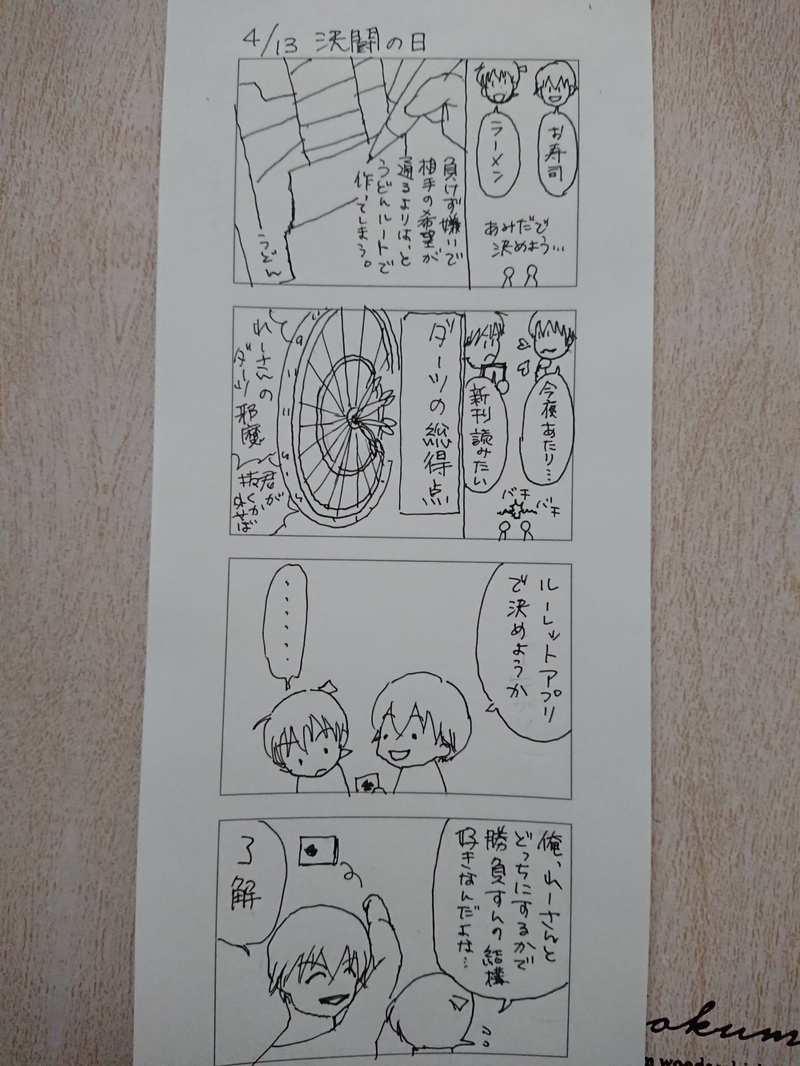 4/13 決闘の日
お寿司
ラーメン
あみだで
決めよう…
負けず嫌いで
相手の希望が
通るよりは、と
うどんルートまで
作ってしまう。
うどん
今夜あたり…
新刊読みたい
バチ
バチ
ダーツの総得点
れーさんの
ダーツ邪魔
君が
抜くか
外せば
ルーレットアプリ
で決めようか
・・・・・・
俺、れーさんと
どっちにするかで
勝負すんの結構
好きなんだよな…
了解
okum
n woods